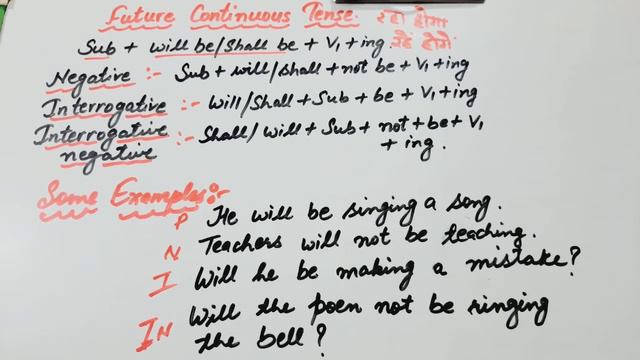 Future Continuous Tense. रहा होगा
Sub + will be/shall be + V₁ + ing. रहे होंगे
Negative :- Sub + will/shall + not be + V₁ + ing
Interrogative :- Will/Shall + Sub + be + V₁ + ing
Interrogative negative :- Shall/will + Sub + not + be + V₁ + ing.
Some Examples:-
P He will be singing a song.
N Teachers will not be teaching.
I Will he be making a mistake?
IN Will the poen not be ringing
the bell?